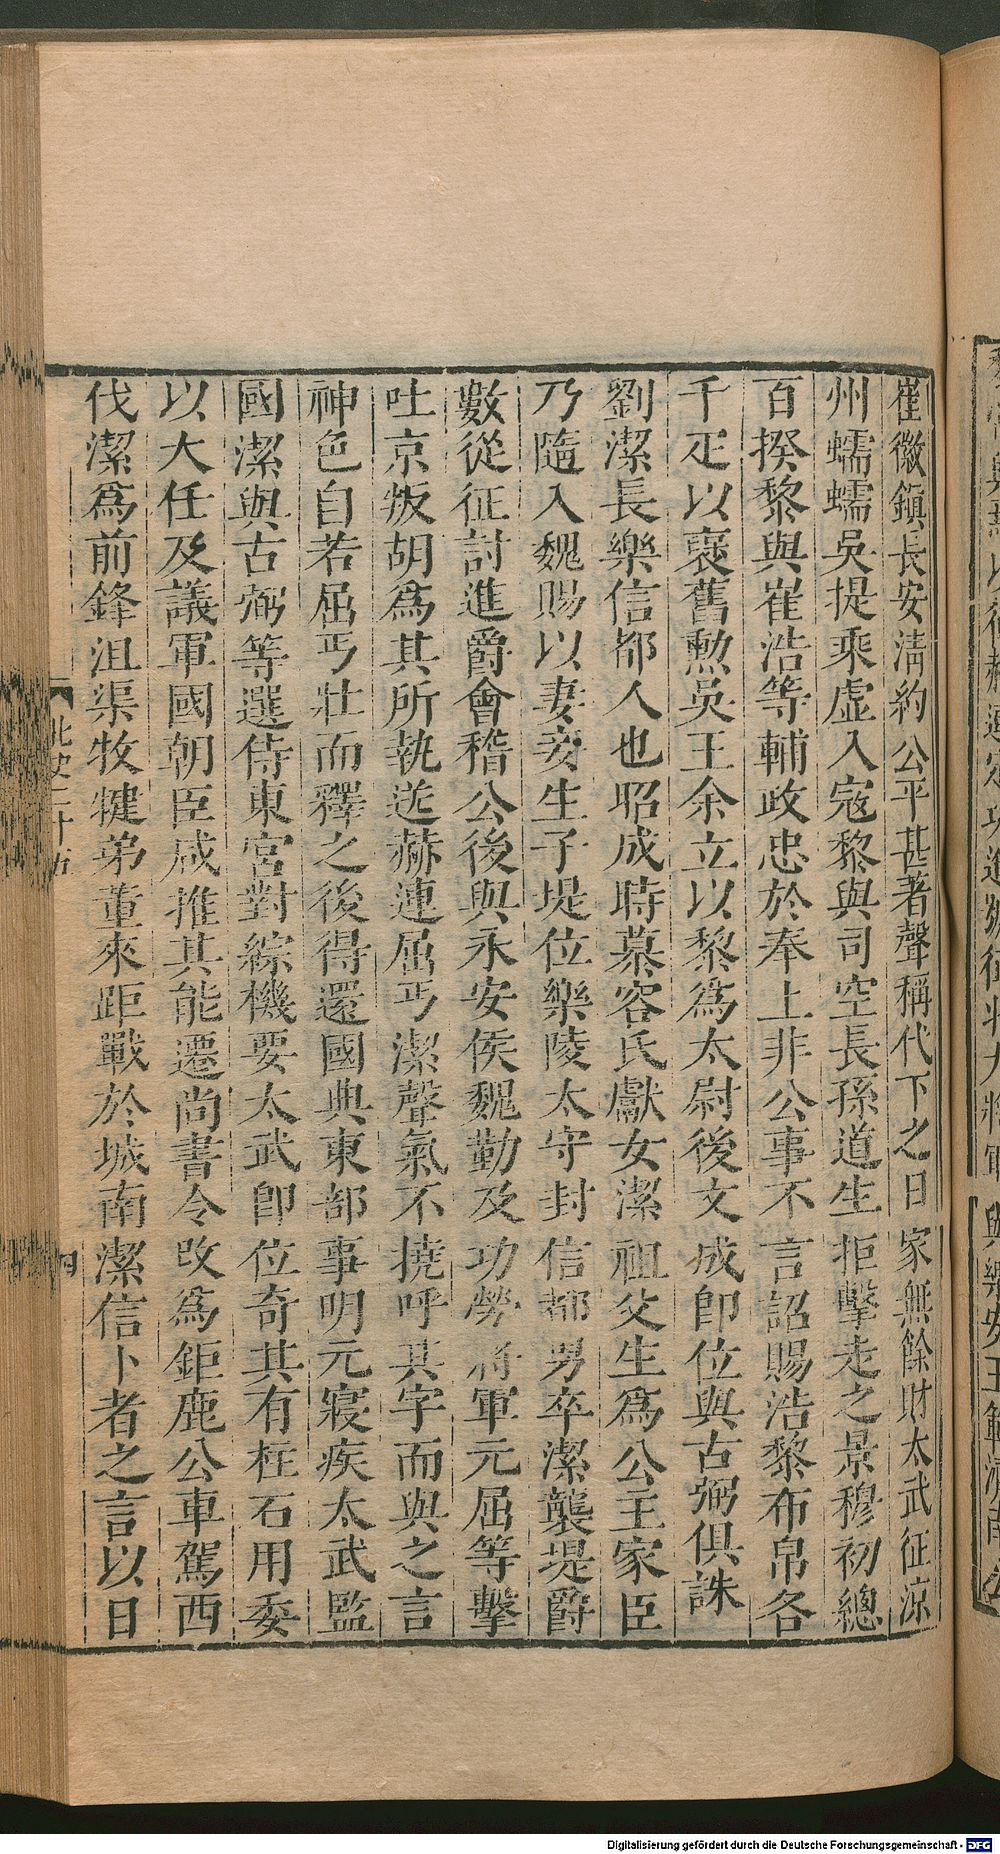 崔徽鎮長安淸約公平甚著聲稱代下之日家無餘財太武征涼
州蠕蠕吳提乘虛入寇黎與司空長孫道生拒擊走之景穆初總
百揆黎與崔浩等輔政忠於奉上非公事不言詔賜浩黎布帛各
千疋以襃舊勲吳王余立以黎爲太尉後文成卽位與古弼俱誅
劉潔長樂信都人也昭成時慕容氏獻女潔祖父生爲公主家臣
乃隨入魏賜以妻妾生子堤位樂陵太守封信都男卒潔襲堤爵
數從征討進爵會稽公後與永安侯魏勤及功勞將軍元屈等擊
吐京叛胡爲其所執送赫連屈丐潔聲氣不撓呼其字而與之言
神色自若屈丐壯而釋之後得還國典東部事明元寢疾太武監
國潔與古弼等選侍東宮對綜機要太武卽位奇其有柱石用委
以大任及議軍國朝臣咸推其能遷尚書令改爲鉅鹿公車駕西
伐潔爲前鋒沮渠牧犍弟董來距戰於城南潔信卜者之言以日
北史二十五
四
Digitalisierung gefördert durch die Deutsche Forschungsgemeinschaft - DFG